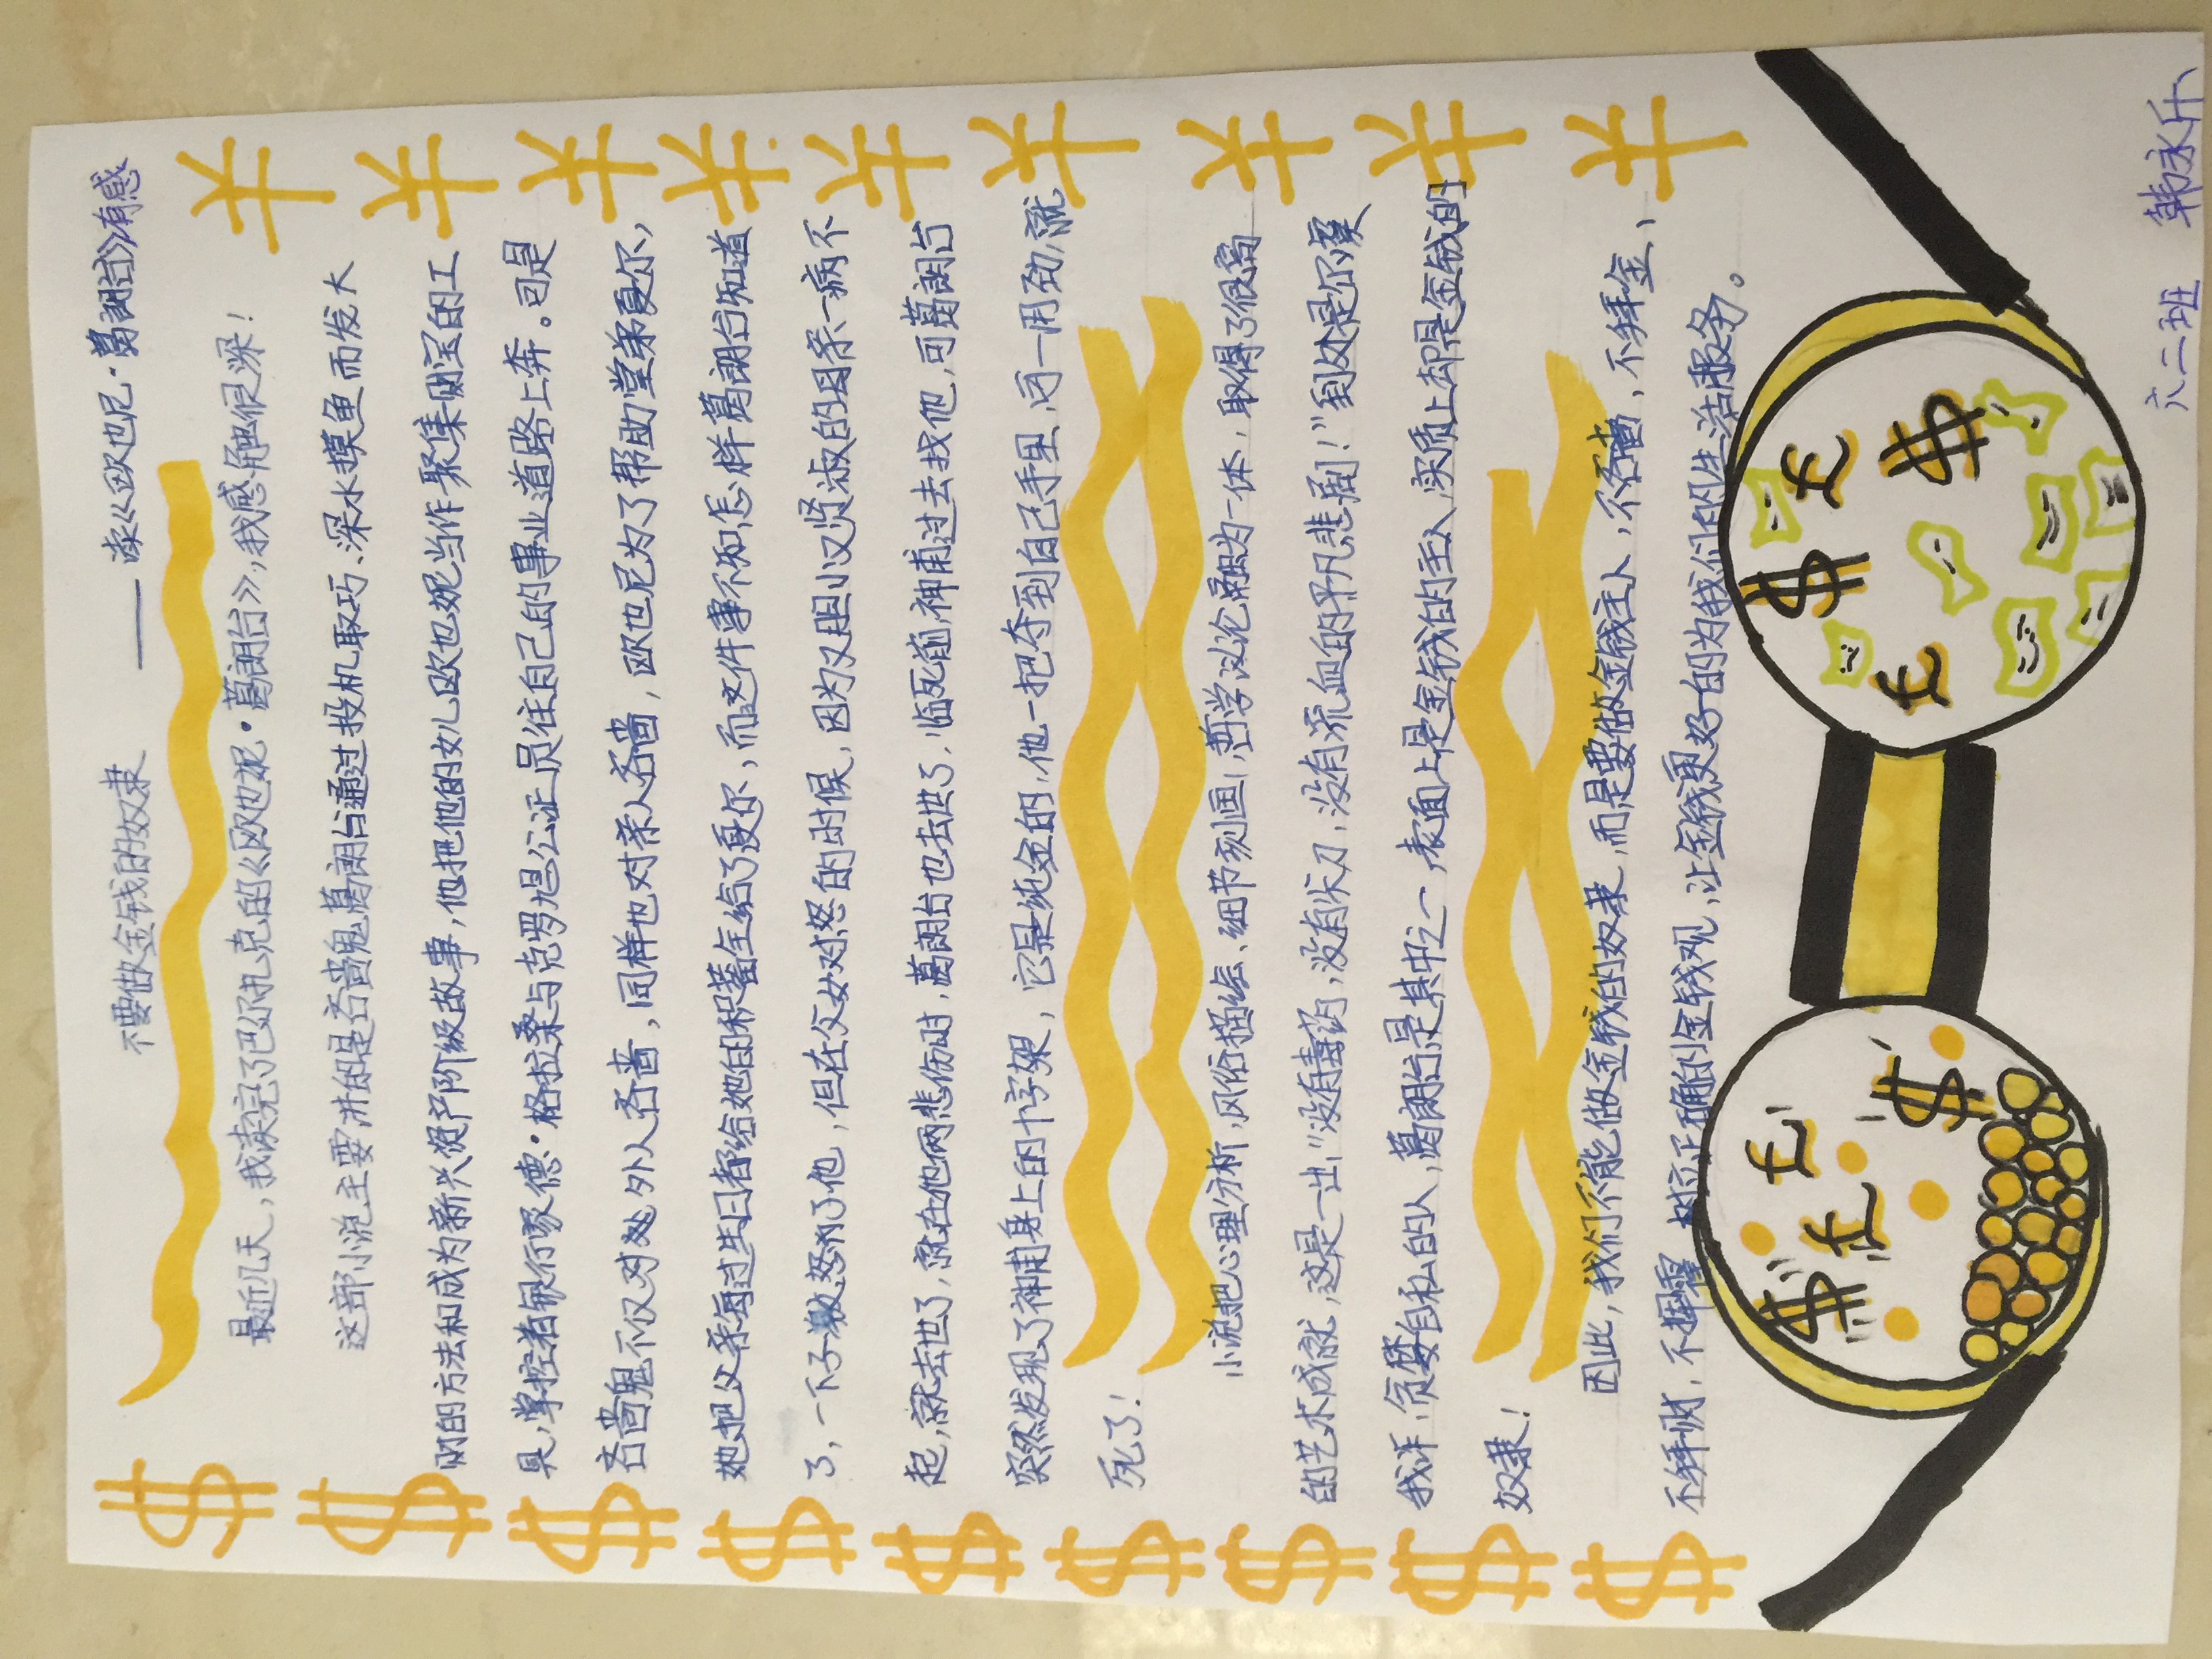 不要做金钱的奴隶 ——读《欧也尼·葛朗台》有感
最近几天，我读完了巴尔扎克的《欧也妮·葛朗台》，我感触很深！
这部小说主要讲的是吝啬鬼葛朗台通过投机取巧、深水摸鱼而发大
财的方法和成为新兴资产阶级故事，他把他的女儿欧也妮当作聚集财宝的工
具，掌控着银行家德·格拉桑与克罗旭公证员往自己的事业道路上奔。可是
吝啬鬼不仅对处外人吝啬，同样也对亲人吝啬，欧也尼为了帮助堂弟夏尔，
她把父亲每过生日都给她的积蓄全给了夏尔，而这件事不知怎样葛朗台知道
了，一下子激怒了他，但在父女对怒的时候，因为又胆小又贤淑的母亲一病不
起，就去世了，就在他俩悲伤时，葛朗台也去世了，临死前，神甫过去找他，可葛朗台
突然发现了神甫身上的十字架，它是纯金的，他一把夺到自己手里，可一用劲，就
死了！
小说把心理分析，风俗描绘、细节刻画，哲学议论融为一体，取得了很高
的艺术成就，这是一出"没有毒药，没有尖刀，没有流血的平凡悲剧！"到处是尔虞
我诈，贪婪自私的人，葛朗台是其中之一，表面上是金钱的主人，实质上却是金钱的
奴隶！
因此，我们不能做金钱的奴隶，而是要做金钱主人，不吝啬，不拜金、
不拜财，不挥霍，树立正确的金钱观，让金钱更好的为我们的生活服务。
$ $ $ $ $ $ $ $ $
¥ ¥ ¥ ¥ ¥ ¥ ¥ ¥ ¥
$ £ £ $
£ $ £ $
六二班 韩永升